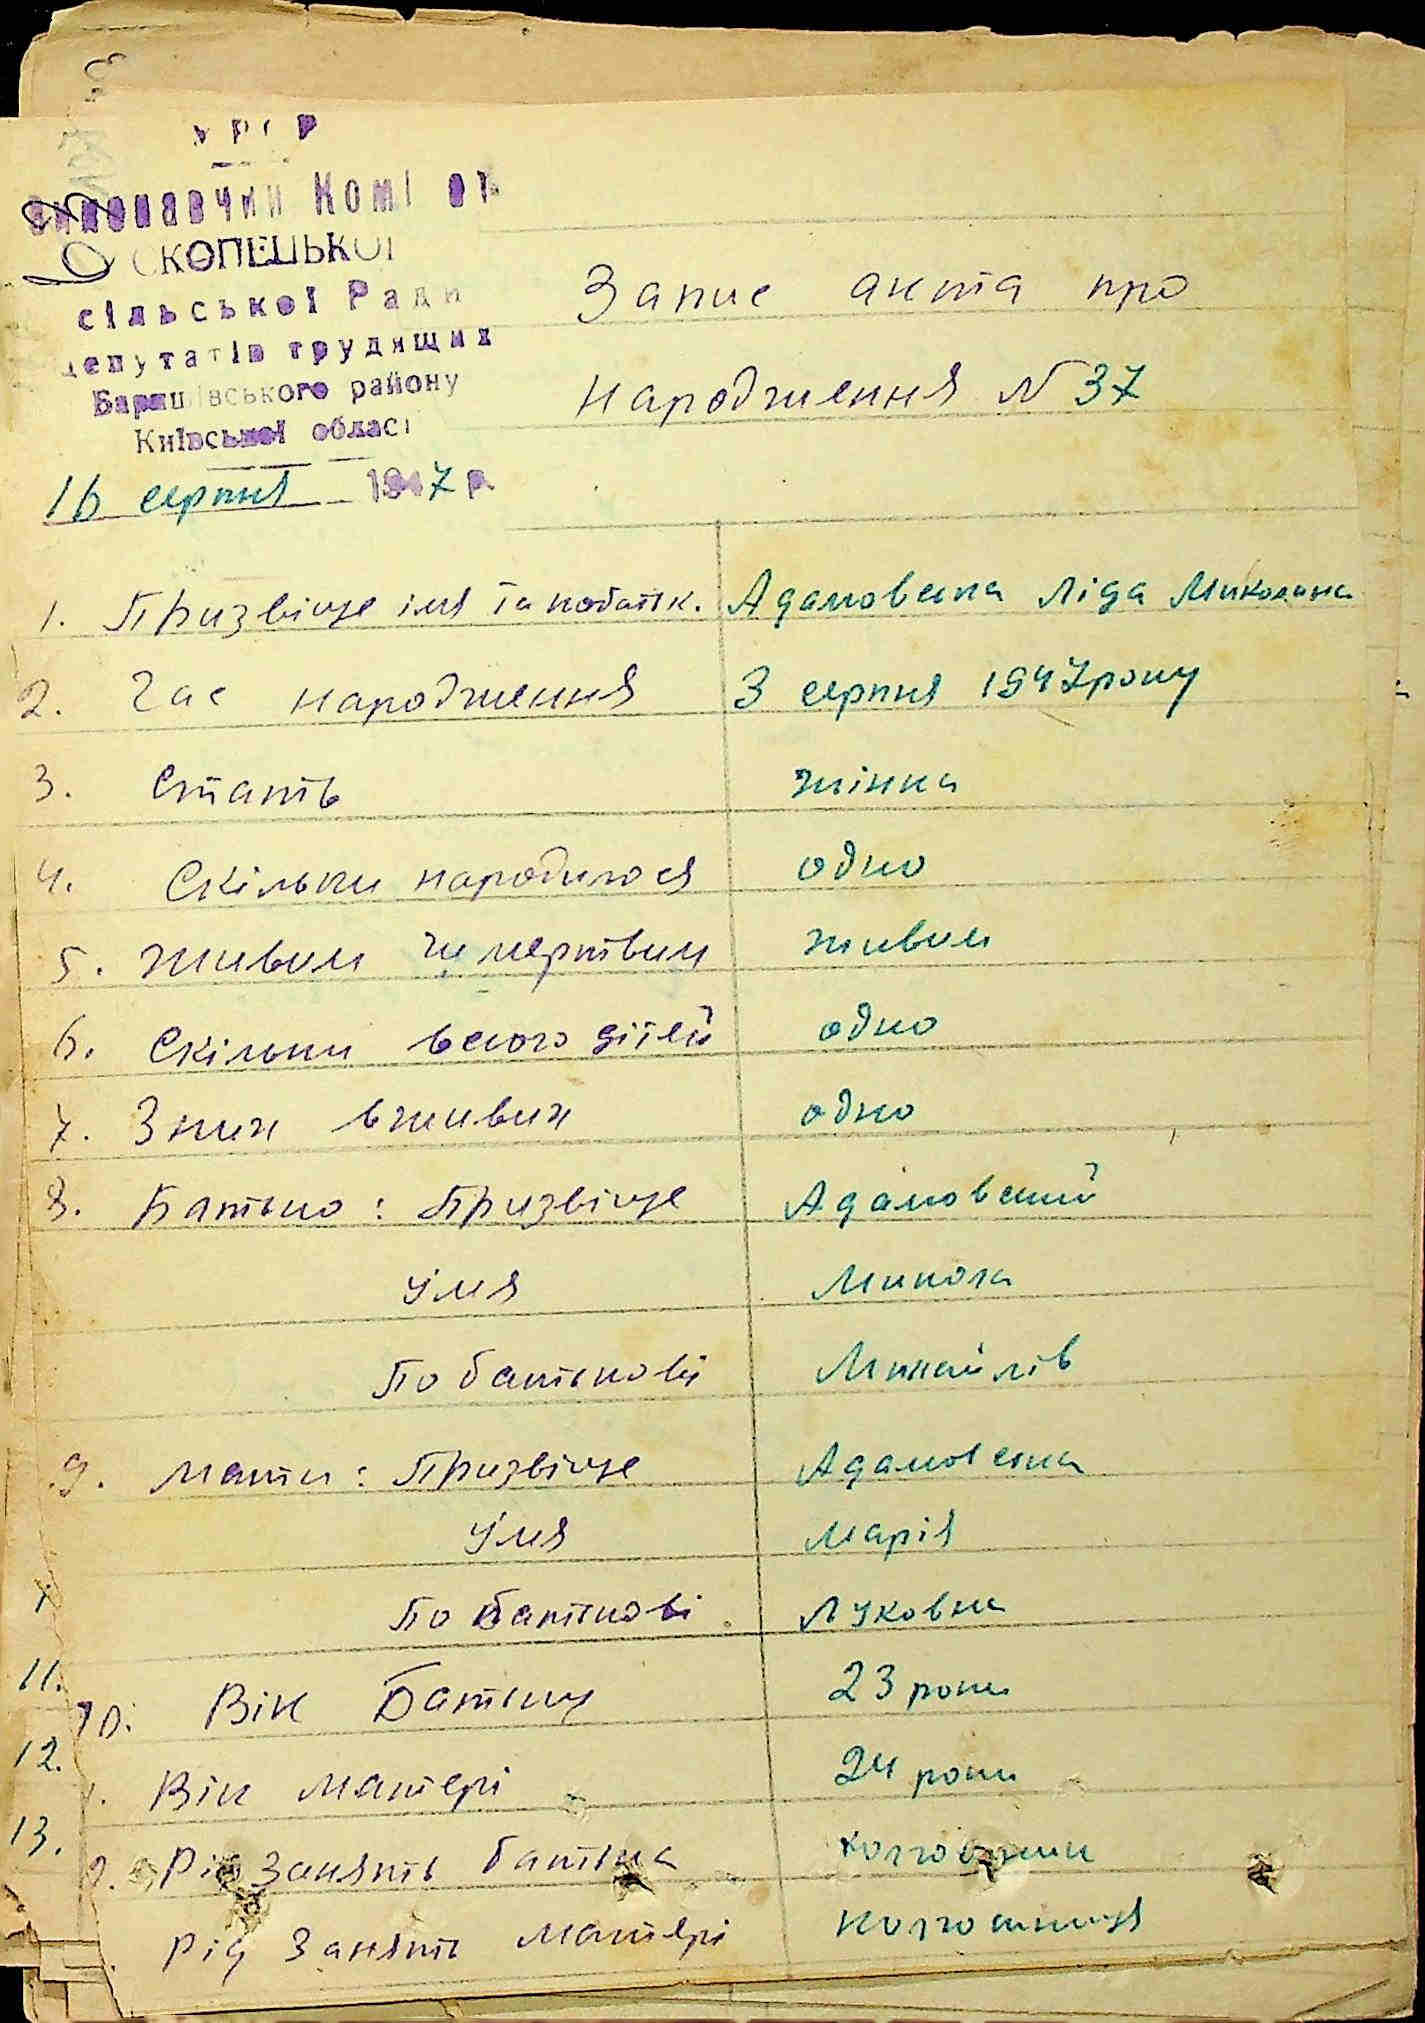 УРСР
Виконавчий Комітет
СКОПЕЦЬКОЇ
сільської Ради
депутатів трудящих
Баришівського району
Київської області
16 серпня 1947 р.
Запис акта про
народження N 37
1. Призвіще імя та побатьк. Адамовська Ліда Миколаївна
2. Час народження 3 серпня 1947 року
3. Стать жінка
4. Скільки народилося одно
5. Живим чи мертвим живим
6. Скільки всього дітей одно
7. З них вживих одно
8. Батько: Призвіще Адамовський
Імя Микола
По батькові Михайлів
9. Мати: Призвіще Адамовська
Імя Марія
По батькові Луковна
11.
10. Вік Батьку 23 роки
12.
Вік матері 24 роки
13.
Рід занять батька колгоспник
Рід Занять матері колгоспниця